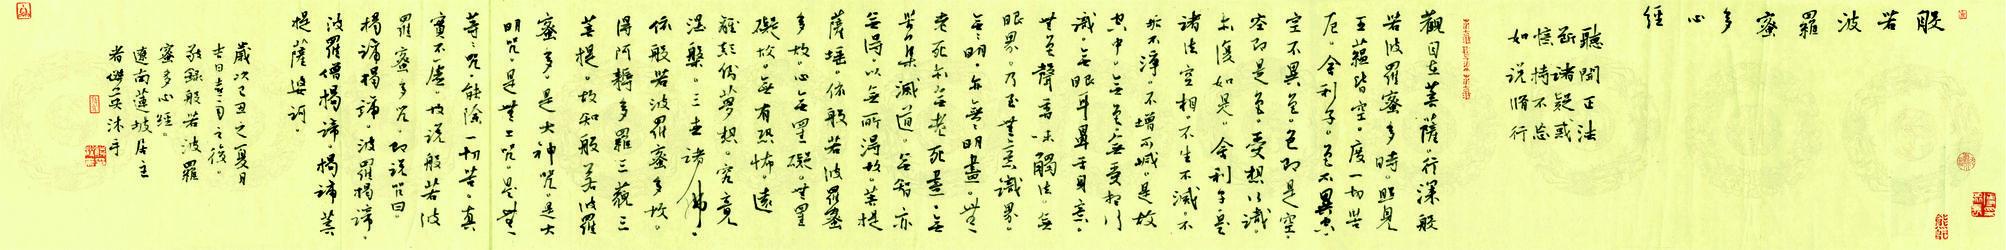 般若波羅蜜多心經
聽聞正法
斷諸疑惑
憶持不忘
如說脩行
觀自在菩薩。行深般
若波羅蜜多時。照見
五蘊皆空。度一切苦
厄。舍利子。色不異空。
空不異色。色即是空。
空即是色。受想行識。
亦復如是。舍利子。是
諸法空相。不生不滅。不
垢不淨。不增不減。是故
空中。無色無受想行
識。無眼耳鼻舌身意。
無色聲香味觸法。無
眼界。乃至無意識界。
無無明。亦無無明盡。無
老死。亦無老死盡。無
苦集滅道。無智亦
無得。以無所得故。菩提
薩埵。依般若波羅蜜
多故。心無罣礙。無罣
礙故。無有恐怖。遠
離顛倒夢想。究竟
涅槃。三世諸佛。
依般若波羅蜜多故。
得阿耨多羅三藐三
菩提。故知般若波羅
蜜多。是大神咒。是大
明咒。是無上咒。是無
等等咒。能除一切苦。真
實不虛。故說般若波
羅蜜多咒。即說咒曰。
揭諦揭諦。波羅揭諦。
波羅僧揭諦。揭諦菩
提薩婆訶。
歲次己丑之夏月
吉日
之後。
敬錄般若波羅
蜜多心經。
遼南蓮坡居主
者
沐手